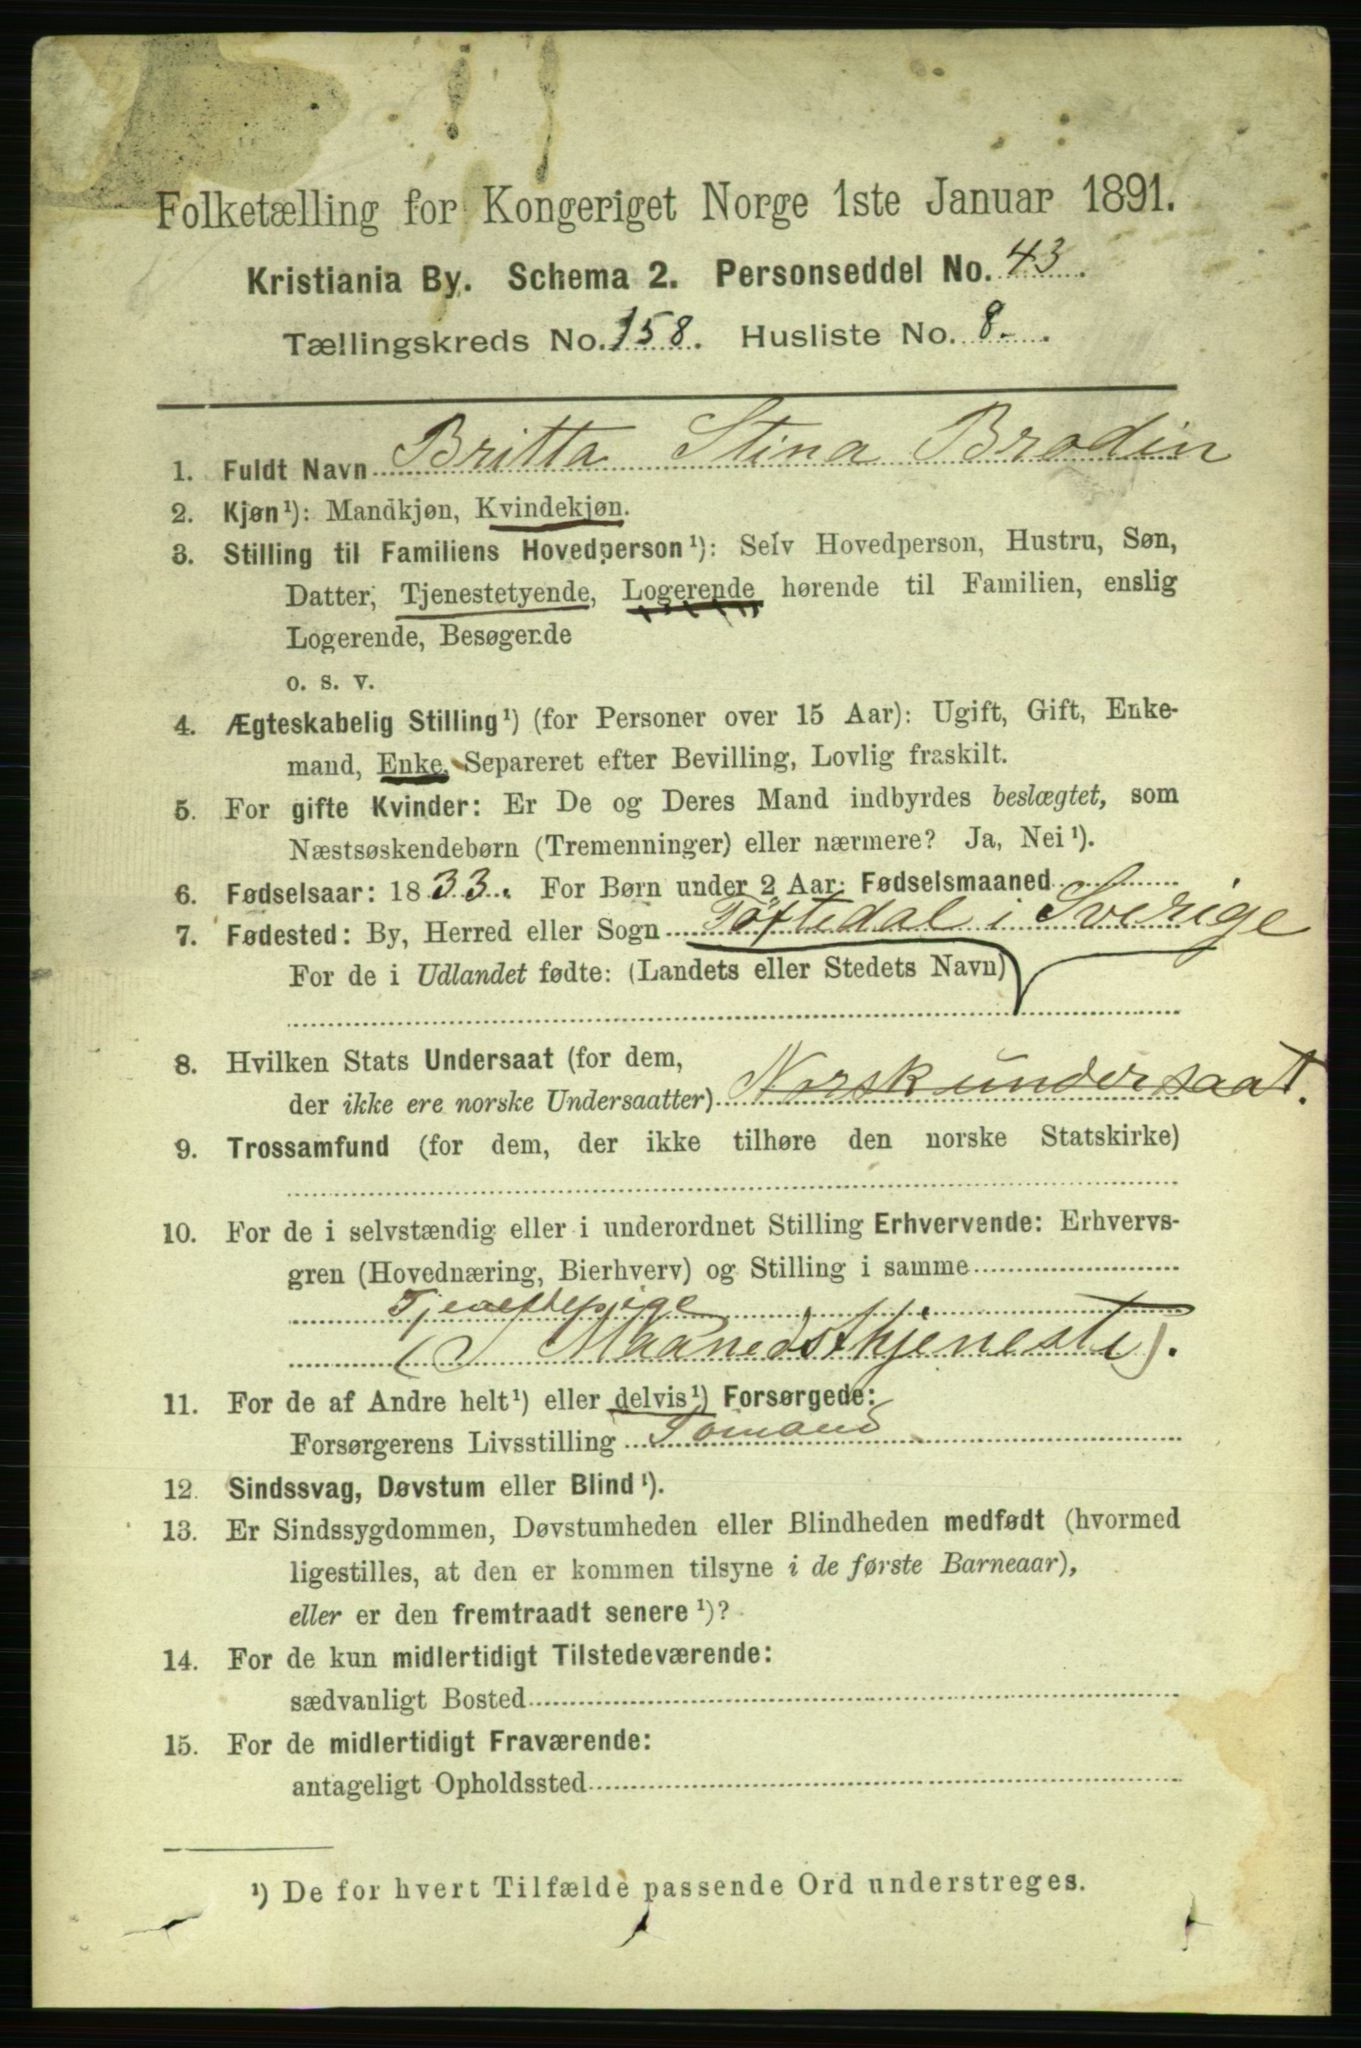 Folketælling for Kongeriget Norge 1ste Januar 1891.
Kristiania By. Schema 2. Personseddel No. 43.
Tællingskreds No. 158. Husliste No. 8.
1. Fuldt Navn Britta Stina Brodin
2. Kjøn¹): Mandkjøn, Kvindekjøn.
3. Stilling til Familiens Hovedperson¹): Selv Hovedperson, Hustru, Søn,
Datter, Tjenestetyende, Logerende hørende til Familien, enslig
Logerende, Besøgende
o. s. v.
4. Ægteskabelig Stilling¹) (for Personer over 15 Aar): Ugift, Gift, Enke-
mand, Enke, Separeret efter Bevilling, Lovlig fraskilt.
5. For gifte Kvinder: Er De og Deres Mand indbyrdes beslægtet, som
Næstsøskendebørn (Tremenninger) eller nærmere? Ja, Nei¹).
6. Fødselsaar: 1833. For Børn under 2 Aar: Fødselsmaaned
7. Fødested: By, Herred eller Sogn Töftedal i Sverige
For de i Udlandet fødte: (Landets eller Stedets Navn)
8. Hvilken Stats Undersaat (for dem,
der ikke ere norske Undersaatter) Norsk undersaat.
9. Trossamfund (for dem, der ikke tilhøre den norske Statskirke)
10. For de i selvstændig eller i underordnet Stilling Erhvervende: Erhvervs-
gren (Hovednæring, Bierhverv) og Stilling i samme
Tjenestepige
(I Maanedsthjeneste).
11. For de af Andre helt¹) eller delvis¹) Forsørgede:
Forsørgerens Livsstilling
12. Sindssvag, Døvstum eller Blind¹).
13. Er Sindssygdommen, Døvstumheden eller Blindheden medfødt (hvormed
ligestilles, at den er kommen tilsyne i de første Barneaar),
eller er den fremtraadt senere¹)?
14. For de kun midlertidigt Tilstedeværende:
sædvanligt Bosted
15. For de midlertidigt Fraværende:
antageligt Opholdssted
¹) De for hvert Tilfælde passende Ord understreges.